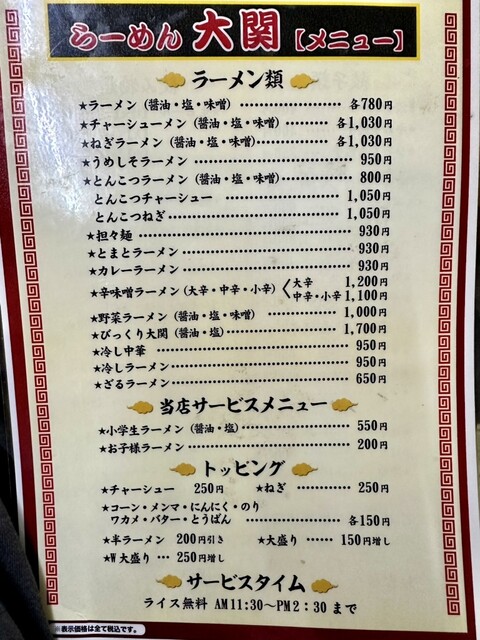 らーめん 大関【メニュー】
ラーメン類
★ラーメン（醤油・塩・味噌）………………… 各780円
★チャーシューメン（醤油・塩・味噌）……… 各1,030円
★ねぎラーメン（醤油・塩・味噌）…………… 各1,030円
★うめしそラーメン ………………………… 950円
★とんこつラーメン（醤油・塩・味噌）……… 800円
とんこつチャーシュー ………………… 1,050円
とんこつねぎ …………………………… 1,050円
★担々麺 ……………………………………… 930円
★とまとラーメン …………………………… 930円
★カレーラーメン …………………………… 930円
★辛味噌ラーメン（大辛・中辛・小辛）〈 大辛 1,200円
中辛・小辛 1,100円
★野菜ラーメン（醤油・塩・味噌）………… 1,000円
★びっくり大関（醤油・塩）………………… 1,700円
★冷し中華 …………………………………… 950円
★冷しラーメン ……………………………… 950円
★ざるラーメン ……………………………… 650円
当店サービスメニュー
★小学生ラーメン（醤油・塩）……………… 550円
★お子様ラーメン …………………………… 200円
トッピング
★チャーシュー 250円 ★ねぎ ………… 250円
★コーン・メンマ・にんにく・のり
ワカメ・バター・とうばん ……………… 各150円
★半ラーメン 200円引き ★大盛り … 150円増し
★W大盛り … 250円増し
サービスタイム
ライス無料 AM11:30〜PM2:30 まで
※表示価格は全て税込です。